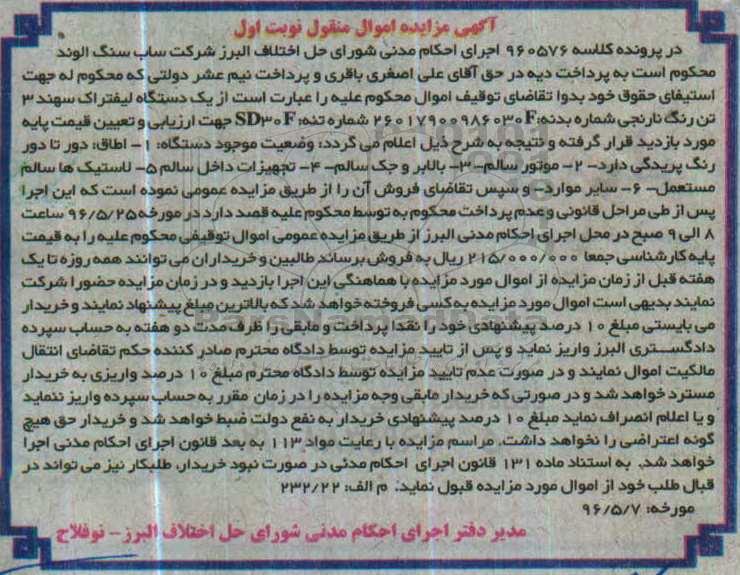 آگهی مزایده اموال منقول نوبت اول
در پرونده کلاسه ۹۶۰۵۷۶ اجرای احکام مدنی شورای حل اختلاف البرز شرکت ساب سنگ الوند
محکوم است به پرداخت دیه در حق آقای علی اصغری باقری و پرداخت نیم عشر دولتی که محکوم له جهت
استیفای حقوق خود بدوا تقاضای توقیف اموال محکوم علیه را عبارت است از یک دستگاه لیفتراک سهند ۳
تن رنگ نارنجی شماره بدنه: ۲۶۰۱۷۹۰۰۹۸۶۰۳۰F شماره تنه: SD۳۰F جهت ارزیابی و تعیین قیمت پایه
مورد بازدید قرار گرفته و نتیجه به شرح ذیل اعلام می گردد: وضعیت موجود دستگاه: ۱- اطاق: دور تا دور
رنگ پریدگی دارد- ۲- موتور سالم- ۳- بالابر و جک سالم- ۴- تجهیزات داخل سالم ۵- لاستیک ها سالم
مستعمل- ۶- سایر موارد- و سپس تقاضای فروش آن را از طریق مزایده عمومی نموده است که این اجرا
پس از طی مراحل قانونی و عدم پرداخت محکوم به توسط محکوم علیه قصد دارد در مورخه ۹۶/۵/۲۵ ساعت
۸ الی ۹ صبح در محل اجرای احکام مدنی البرز از طریق مزایده عمومی اموال توقیفی محکوم علیه را به قیمت
پایه کارشناسی جمعا ۲۱۵/۰۰۰/۰۰۰ ریال به فروش برساند طالبین و خریداران می توانند همه روزه تا یک
هفته قبل از زمان مزایده از اموال مورد مزایده با هماهنگی این اجرا بازدید و در زمان مزایده حضورا شرکت
نمایند بدیهی است اموال مورد مزایده به کسی فروخته خواهد شد که بالاترین مبلغ پیشنهاد نمایند و خریدار
می بایستی مبلغ ۱۰ درصد پیشنهادی خود را نقدا پرداخت و مابقی را ظرف مدت دو هفته به حساب سپرده
دادگستری البرز واریز نماید و پس از تایید مزایده توسط دادگاه محترم صادر کننده حکم تقاضای انتقال
مالکیت اموال نمایند و در صورت عدم تایید مزایده توسط دادگاه محترم مبلغ ۱۰ درصد واریزی به خریدار
مسترد خواهد شد و در صورتی که خریدار مابقی وجه مزایده را در زمان مقرر به حساب سپرده واریز ننماید
و یا اعلام انصراف نماید مبلغ ۱۰ درصد پیشنهادی خریدار به نفع دولت ضبط خواهد شد و خریدار حق هیچ
گونه اعتراضی را نخواهد داشت. مراسم مزایده با رعایت مواد ۱۱۳ به بعد قانون اجرای احکام مدنی اجرا
خواهد شد. به استناد ماده ۱۳۱ قانون اجرای احکام مدنی در صورت نبود خریدار، طلبکار نیز می تواند در
قبال طلب خود از اموال مورد مزایده قبول نماید. م الف: ۲۳۲/۲۲
مورخه: ۹۶/۵/۷
مدیر دفتر اجرای احکام مدنی شورای حل اختلاف البرز- نوفلاح
ParsNamadData